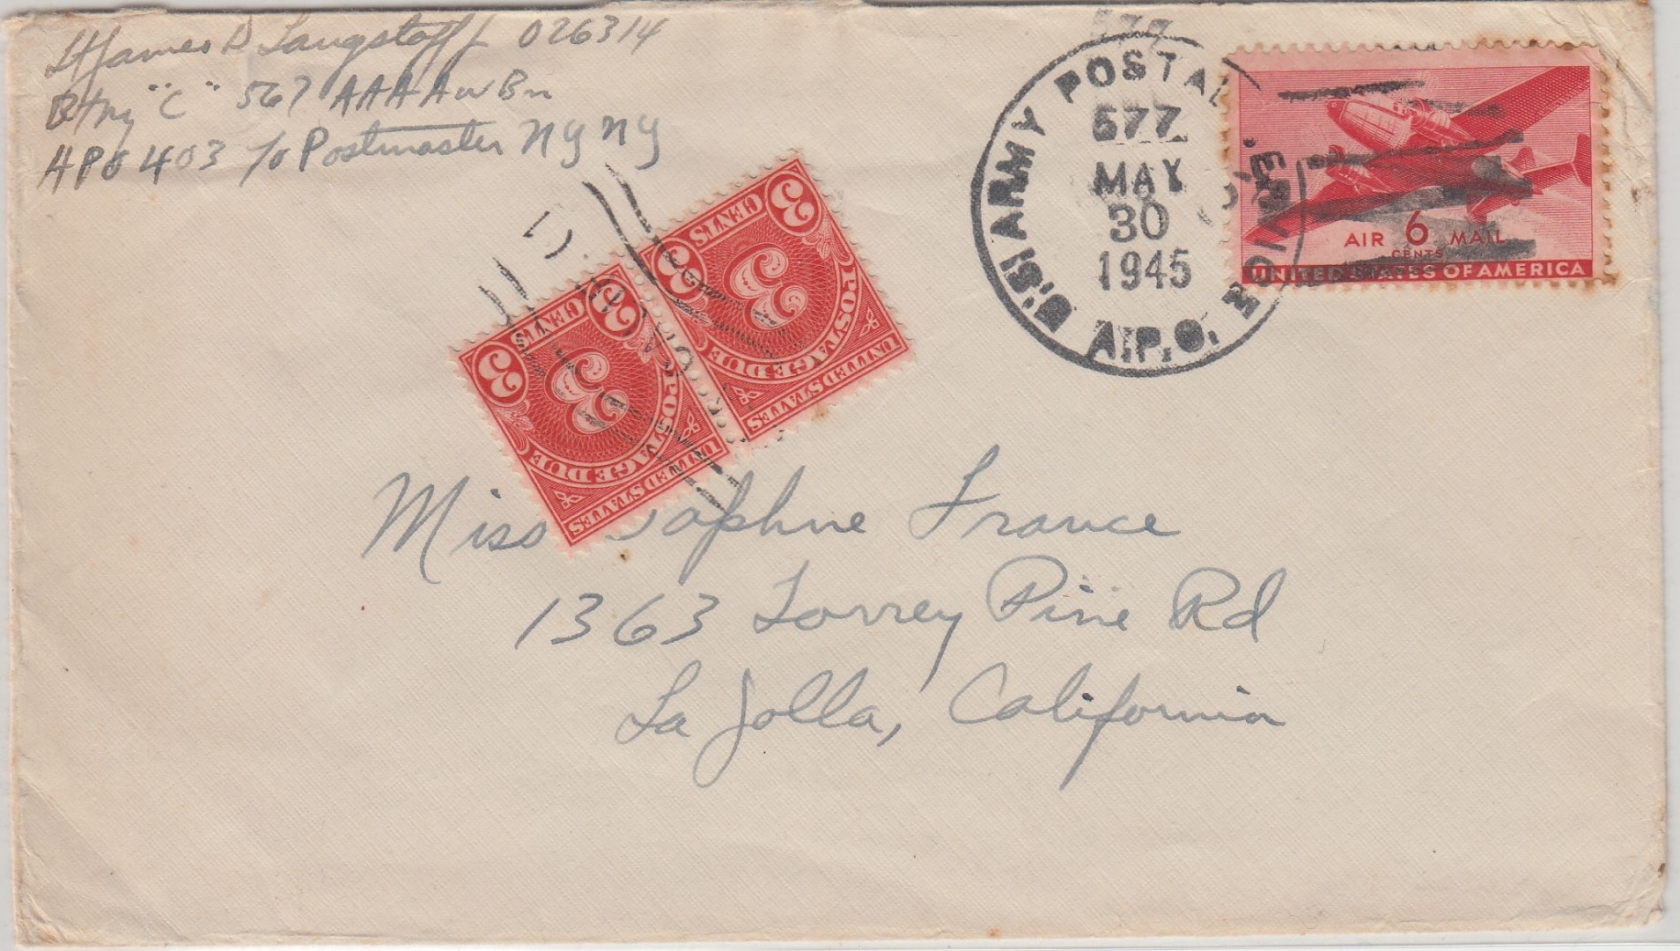 Lt James D Langstaff 026314
Btry "C" 567 AAA AW Bn
APO 403 c/o Postmaster NY NY
577
U.S. ARMY POSTAL SERVICE
577
MAY
30
1945
A.P.O.
AIR 6 MAIL
CENTS
UNITED STATES OF AMERICA
3 CENTS 3
3
POSTAGE DUE
UNITED STATES
3 CENTS 3
3
POSTAGE DUE
UNITED STATES
Miss Daphne France
1363 Torrey Pine Rd
La Jolla, California